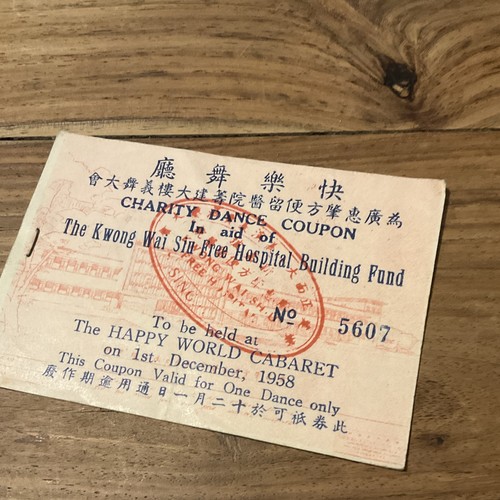 快樂舞廳
為廣惠肇方便留醫院籌建大樓義舞大會
CHARITY DANCE COUPON
In aid of
The Kwong Wai Siu Free Hospital Building Fund
Nº 5607
To be held at
The HAPPY WORLD CABARET
on 1st December, 1958
This Coupon Valid for One Dance only
此券祇可於十二月一日通用逾期作廢